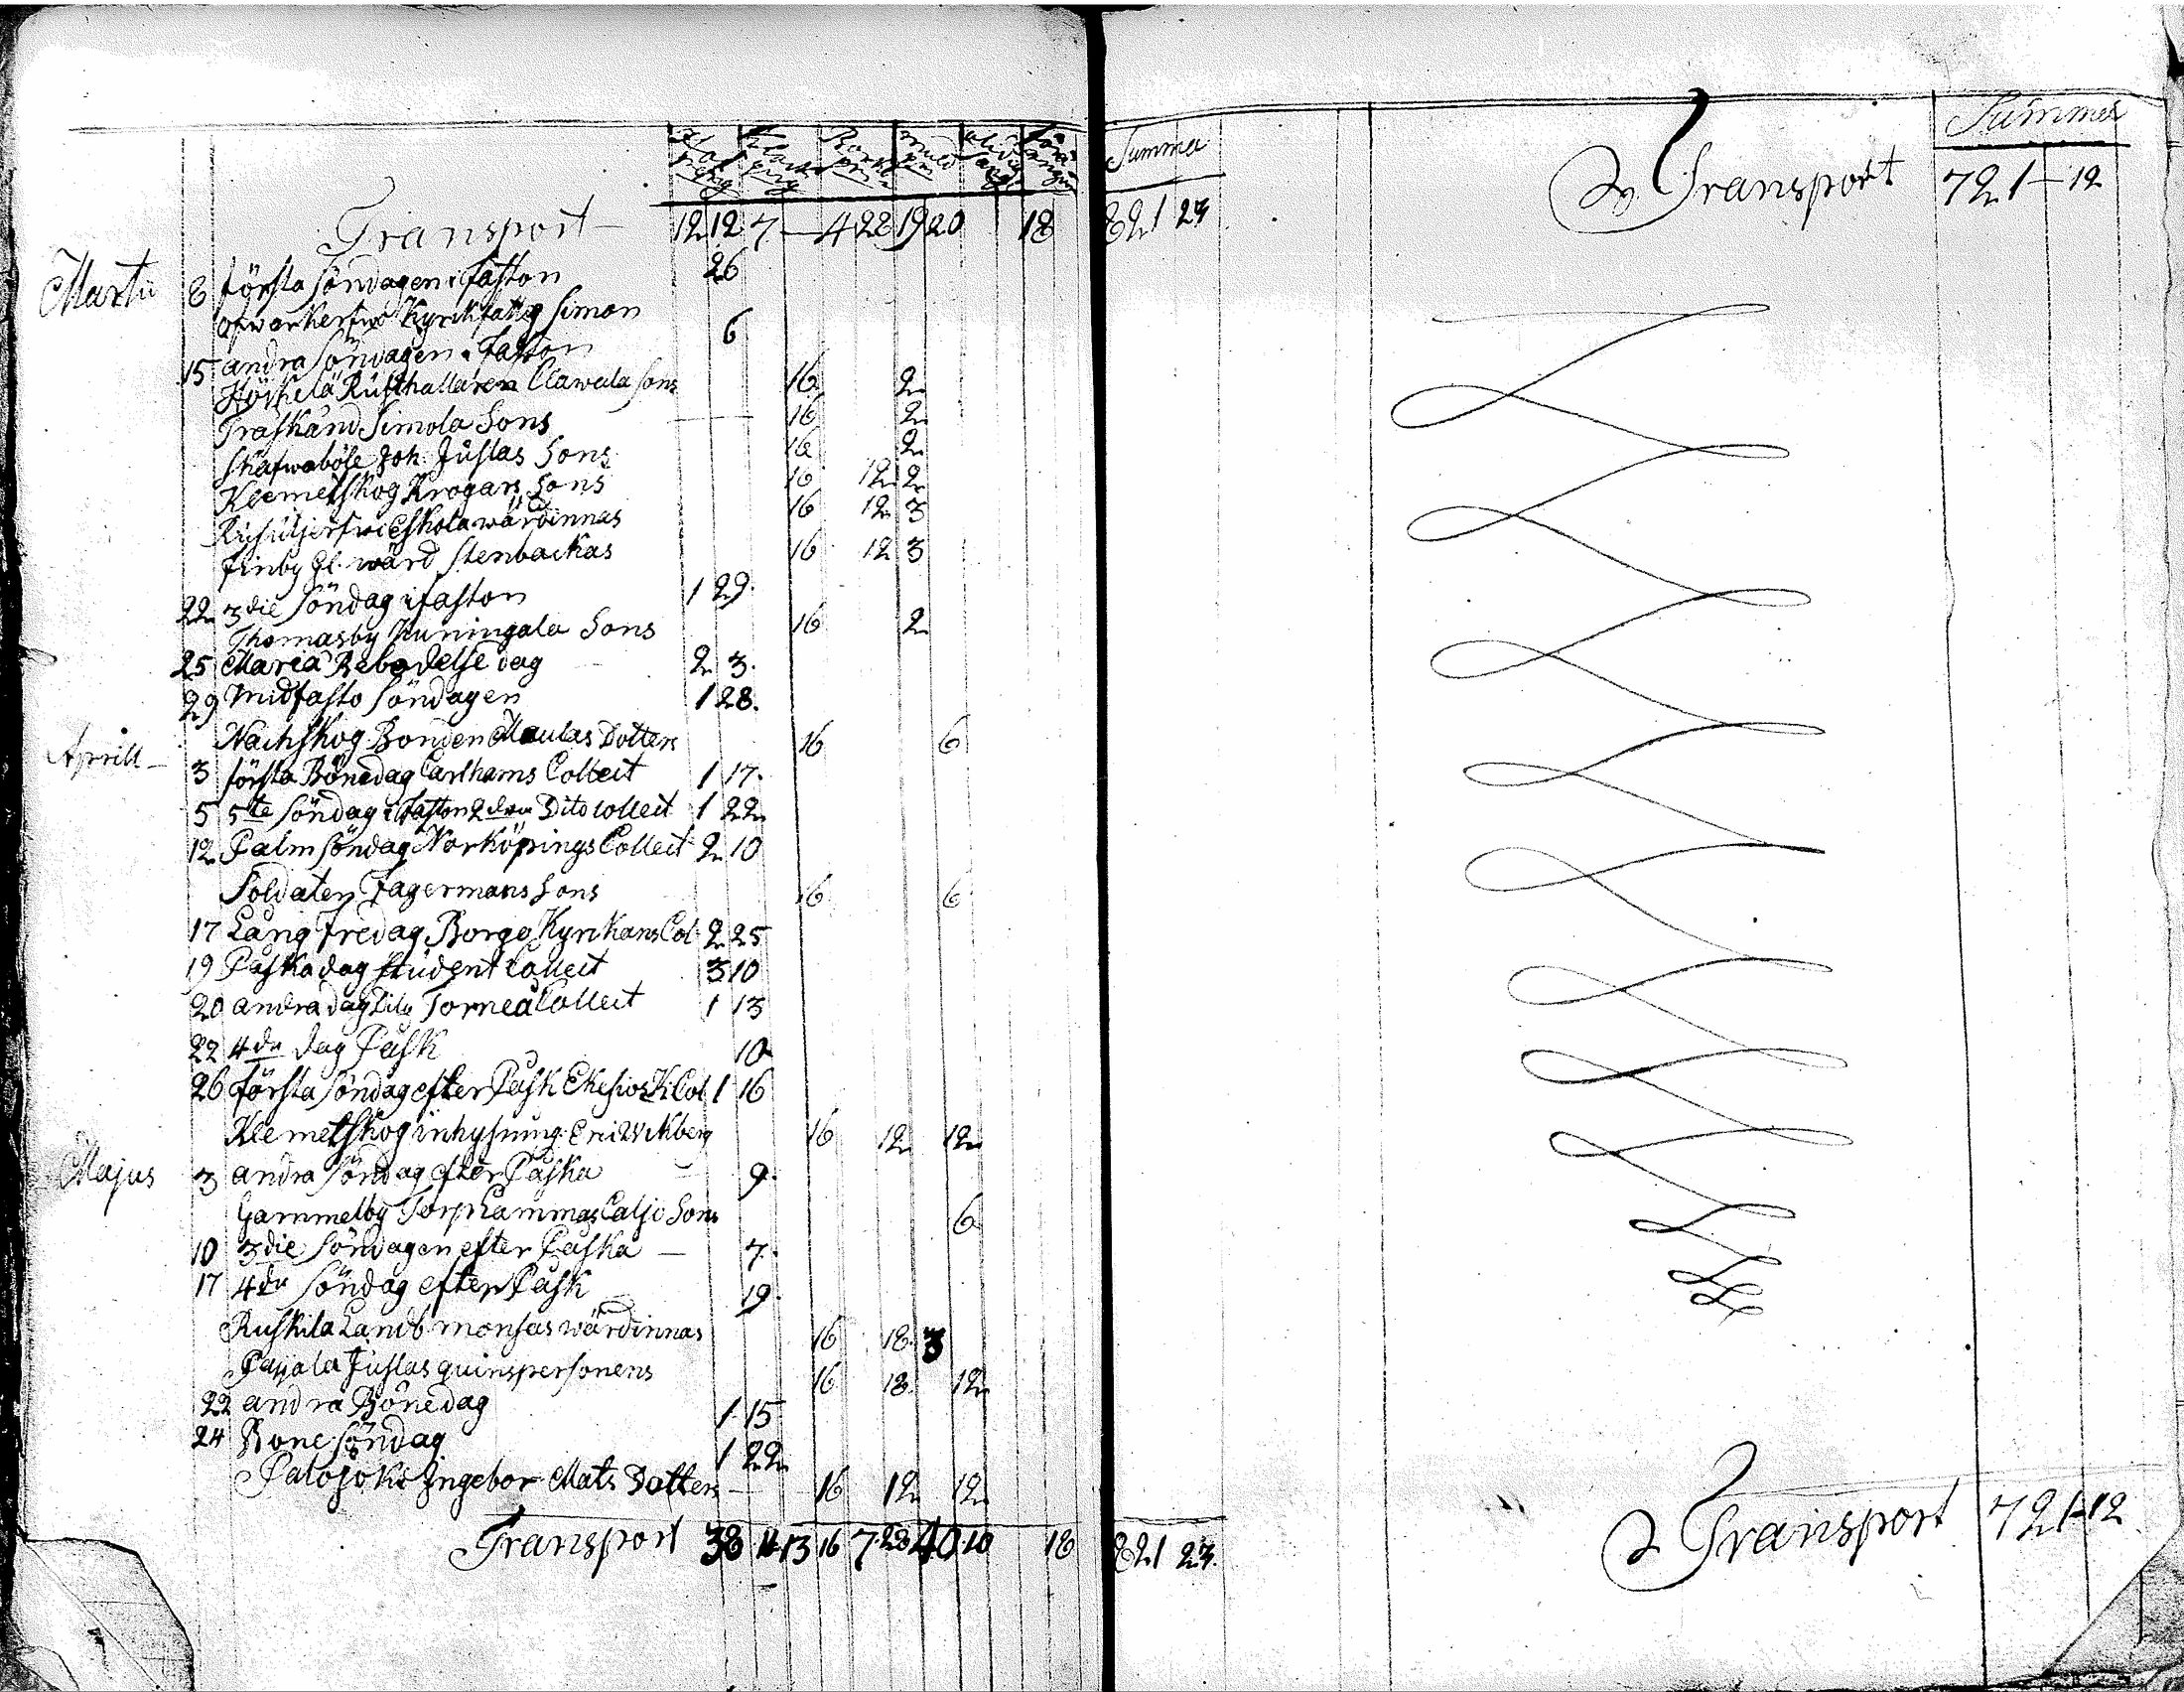 Summa
Transport — 12 12 7 — 4 28 19 20 18 821 23
Martii 8 första söndagen i faston 26
Kyrckfattig Simon 6
15 andra söndagen i faston
Rusthallaren Clawala sons 16 2
Träskand Simola Sons 16 2
Skafwaböle Joh. Juslas Sons 16 2
Klemetskog Krogars Sons 16 12 2
Eskola wärdinnas 16 12 3
Finby Gl. wärd Stenbackas 16 12 3
22 3die Söndag i faston 1 29.
Thomasby Kuningala Sons 16 2
25 Maria Bebodelse dag 2 3.
29 Midfasto söndagen 1 28.
Aprill — Nackskog Bonden Maulas Dotters 16 6
3 första Bönedag Carlhams Collect 1 17.
5 5te Söndag i faston 2dra Dito collect 1 22
12 Palm söndag Norköpings Collect 2 10
Soldaten Fagermans Sons 16 6
17 Lång fredag Borgo Kyrikans Col 2 25
19 Påskadag student Collect 3 10
20 andradag Torneå Collect 1 13
22 4de dag Påsk 10
26 första söndag efter Påsk Ekesios K: Col 1 16
Klemetskog inhysning Eric Wikberg 16 12 12
Majus 3 andra söndag efter Påska 9.
Gammelby Torp Sons 6
10 3die söndagen efter Påska — 7.
17 4de söndag efter Påsk 19.
Ruskila Landb monsas wärdinnas 16 18. 3
Juslas quinspersonens 16 18. 12
22 andra Bönedag 1 15
24 Böne söndag 1 22
Palojoki Ingebor Mats Dotters — 16 12 12
Transport 38 4 13 16 7 28 40 10 18 821 23.
Summa
Transport 721 — 12
Transport 721-12